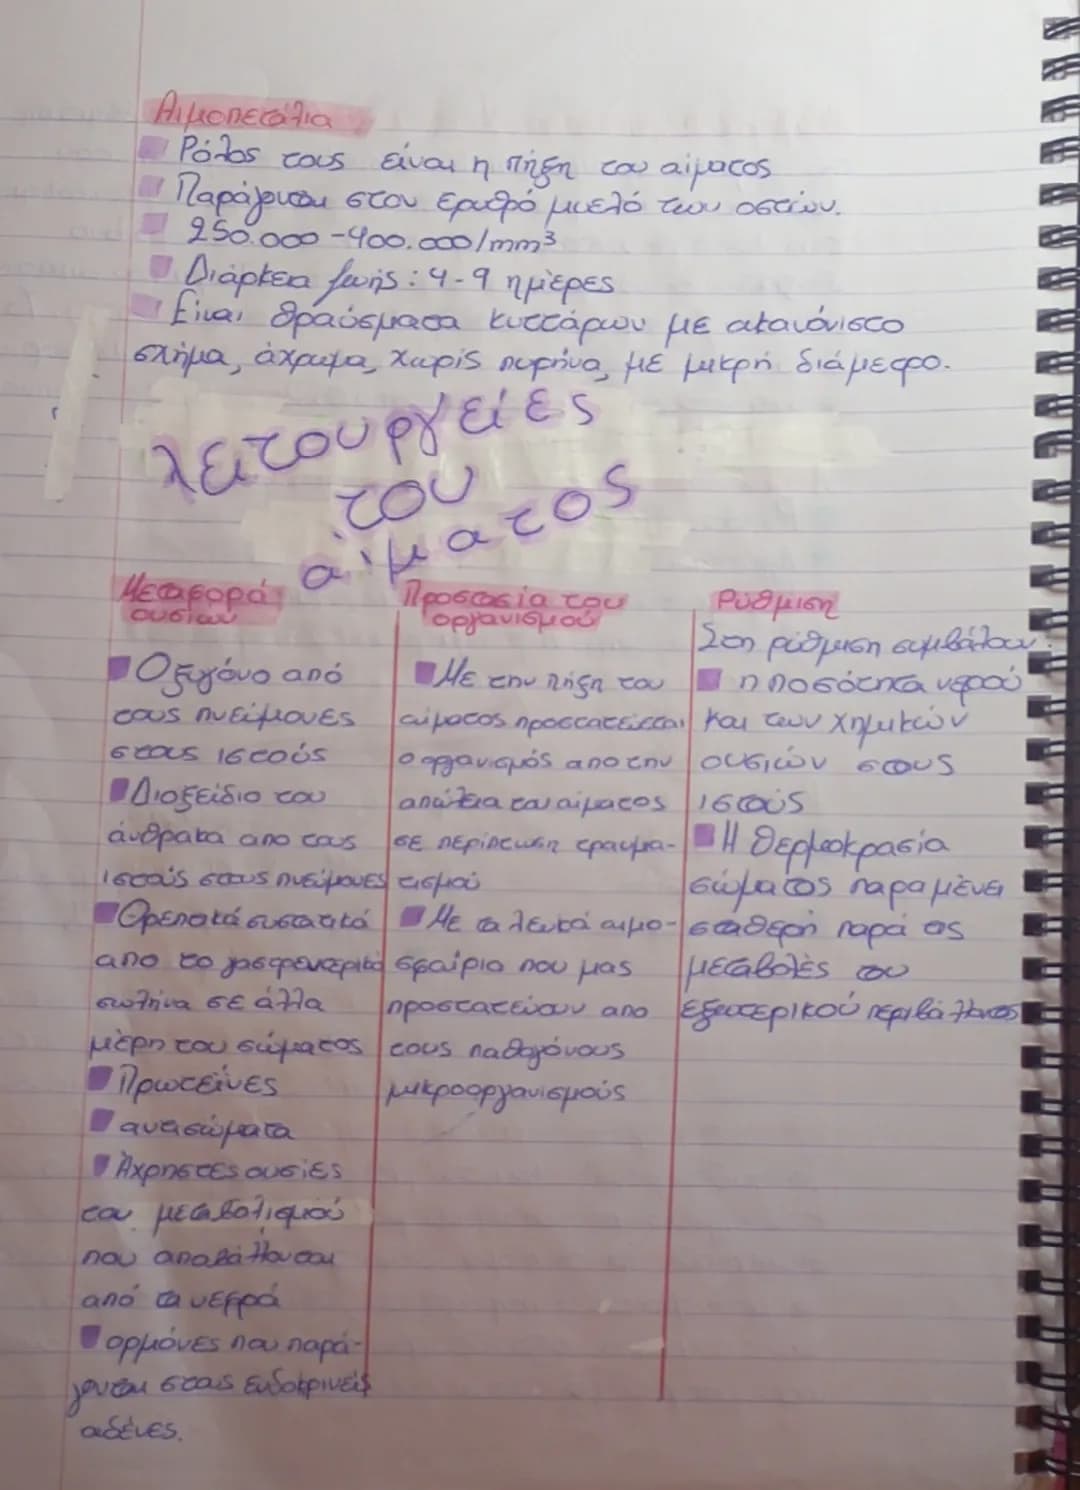 Αιμοπετάλια
Ρόλος τους είναι η πήξη του αίματος
Παράγονται στον ερυθρό μυελό των οστών.
250.000-400.000/mm³
Διάρκεια ζωής: 4-9 ημέρες
Είναι θραύσματα κυττάρων με ακανόνιστο
σχήμα, άχρωμα, χωρίς πυρήνα, με μικρή διάμετρο.
λειτουργείες
του
αίματος
Μεταφορά
ουσιών
Οξυγόνο από
τους πνεύμονες
στους ιστούς
Διοξείδιο του
άνθρακα απο τους
ιστούς στους πνεύμονες
Θρεπτικά συστατικά
απο το γαστρεντερικό
σωλήνα σε άλλα
μέρη του σώματος
Πρωτεΐνες
αντισώματα
Άχρηστες ουσίες
του μεταβολισμού
που αποβάλλονται
από τα νεφρά
ορμόνες που παρά-
γονται στους ενδοκρινείς
αδένες.
Προστασία του
οργανισμού
Με την πήξη του
αίματος προστατεύεται
ο οργανισμός απο την
απώλεια του αίματος
σε περίπτωση τραυμα-
τισμού
Με τα λευκά αιμο-
σφαίρια που μας
προστατεύουν απο
τους παθογόνους
μικροοργανισμούς
Ρύθμιση
Στη ρύθμιση συμβάλουν:
η ποσότητα νερού
και των χημικών
ουσιών στους
ιστούς
Η θερμοκρασία
σώματος παραμένει
σταθερή παρά τις
μεταβολές του
εξωτερικού περιβάλλοντος